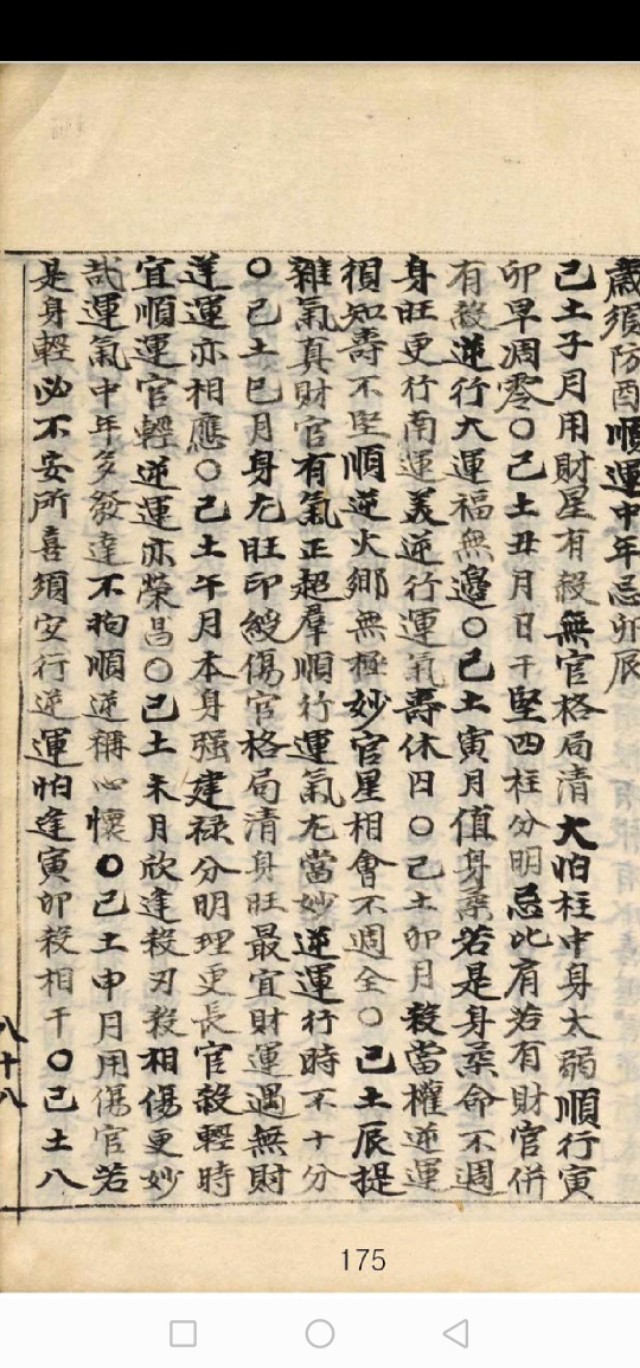 歲須防酉順運中年忌卯辰
己土子月用財星有殺無官格局清大怕柱中身太弱順行寅
卯早凋零○己土丑月日干堅四柱分明忌比肩若有財官併
有殺逆行大運福無邊○己土寅月值身柔若是身柔命不週
身旺更行南運美逆行運氣壽休囚○己土卯月殺當權逆運
須知壽不堅順逆火鄉無極妙官星相會不週全○己土辰提
雜氣真財官有氣正超羣順行運氣尤當妙逆運行時不十分
○己土巳月身尤旺印綬傷官格局清身旺最宜財運遇無財
逆運亦相應○己土午月本身强建禄分明理更長官殺輕時
宜順運官輕逆運亦榮昌○己土未月欣逢殺刃殺相傷更妙
哉運氣中年多發達不拘順逆稱心懷○己土申月用傷官若
是身輕必不安所喜須安行逆運怕逢寅卯殺相干○己土八
八十八
175